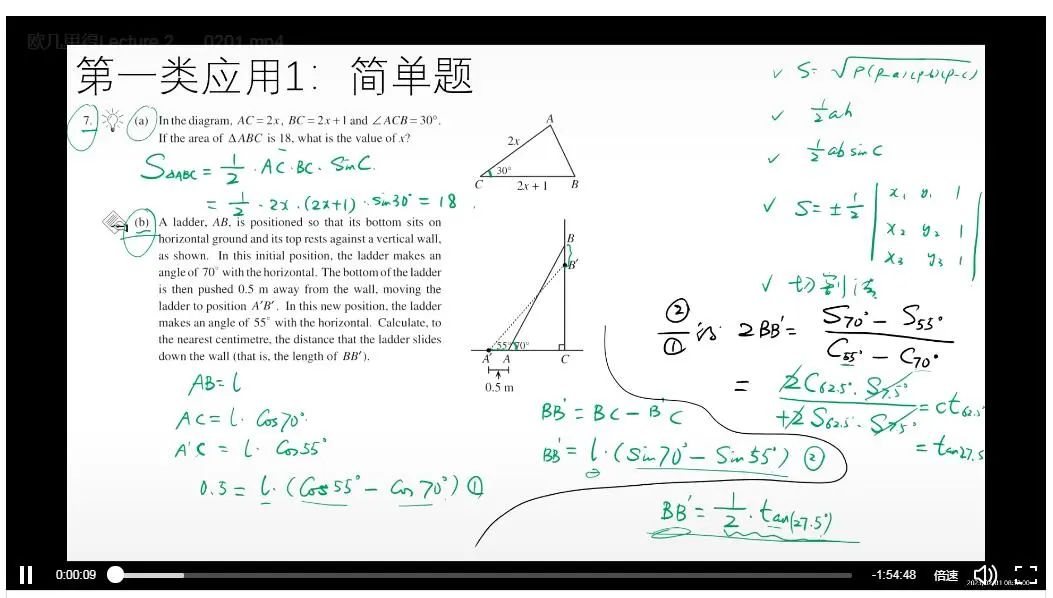 欧几里得Lecture 2 0201.mp4
第一类应用1：简单题
7. (a) In the diagram, AC = 2x, BC = 2x + 1 and ∠ACB = 30°.
If the area of ΔABC is 18, what is the value of x?
S△ABC = 1/2 · AC · BC · SinC
= 1/2 · 2x · (2x+1) · sin30° = 18
A
2x
30°
C
2x + 1
B
(b) A ladder, AB, is positioned so that its bottom sits on
horizontal ground and its top rests against a vertical wall,
as shown. In this initial position, the ladder makes an
angle of 70° with the horizontal. The bottom of the ladder
is then pushed 0.5 m away from the wall, moving the
ladder to position A′B′. In this new position, the ladder
makes an angle of 55° with the horizontal. Calculate, to
the nearest centimetre, the distance that the ladder slides
down the wall (that is, the length of BB′).
B
B′
55°
70°
A′
A
C
0.5 m
AB = l
AC = l · Cos70°
A′C = l · Cos55°
0.5 = l · (Cos55° − Cos70°) ①
BB′ = BC − B′C
BB′ = l · (Sin70° − Sin55°) ②
BB′ = 1/2 · tan(27.5°)
✓ S = √P(P-a)(P-b)(P-c)
✓ 1/2 ah
✓ 1/2 ab sin C
✓ S = ± 1/2 | x₁ y₁ 1
x₂ y₂ 1
x₃ y₃ 1 |
✓ 切割法
②/① 得 2BB′ = (S70° − S55°)/(C55° − C70°)
= (2C62.5° · S7.5°)/(+2S62.5° · S7.5°) = ct62.5°
= tan27.5
0:00:09
-1:54:48
倍速